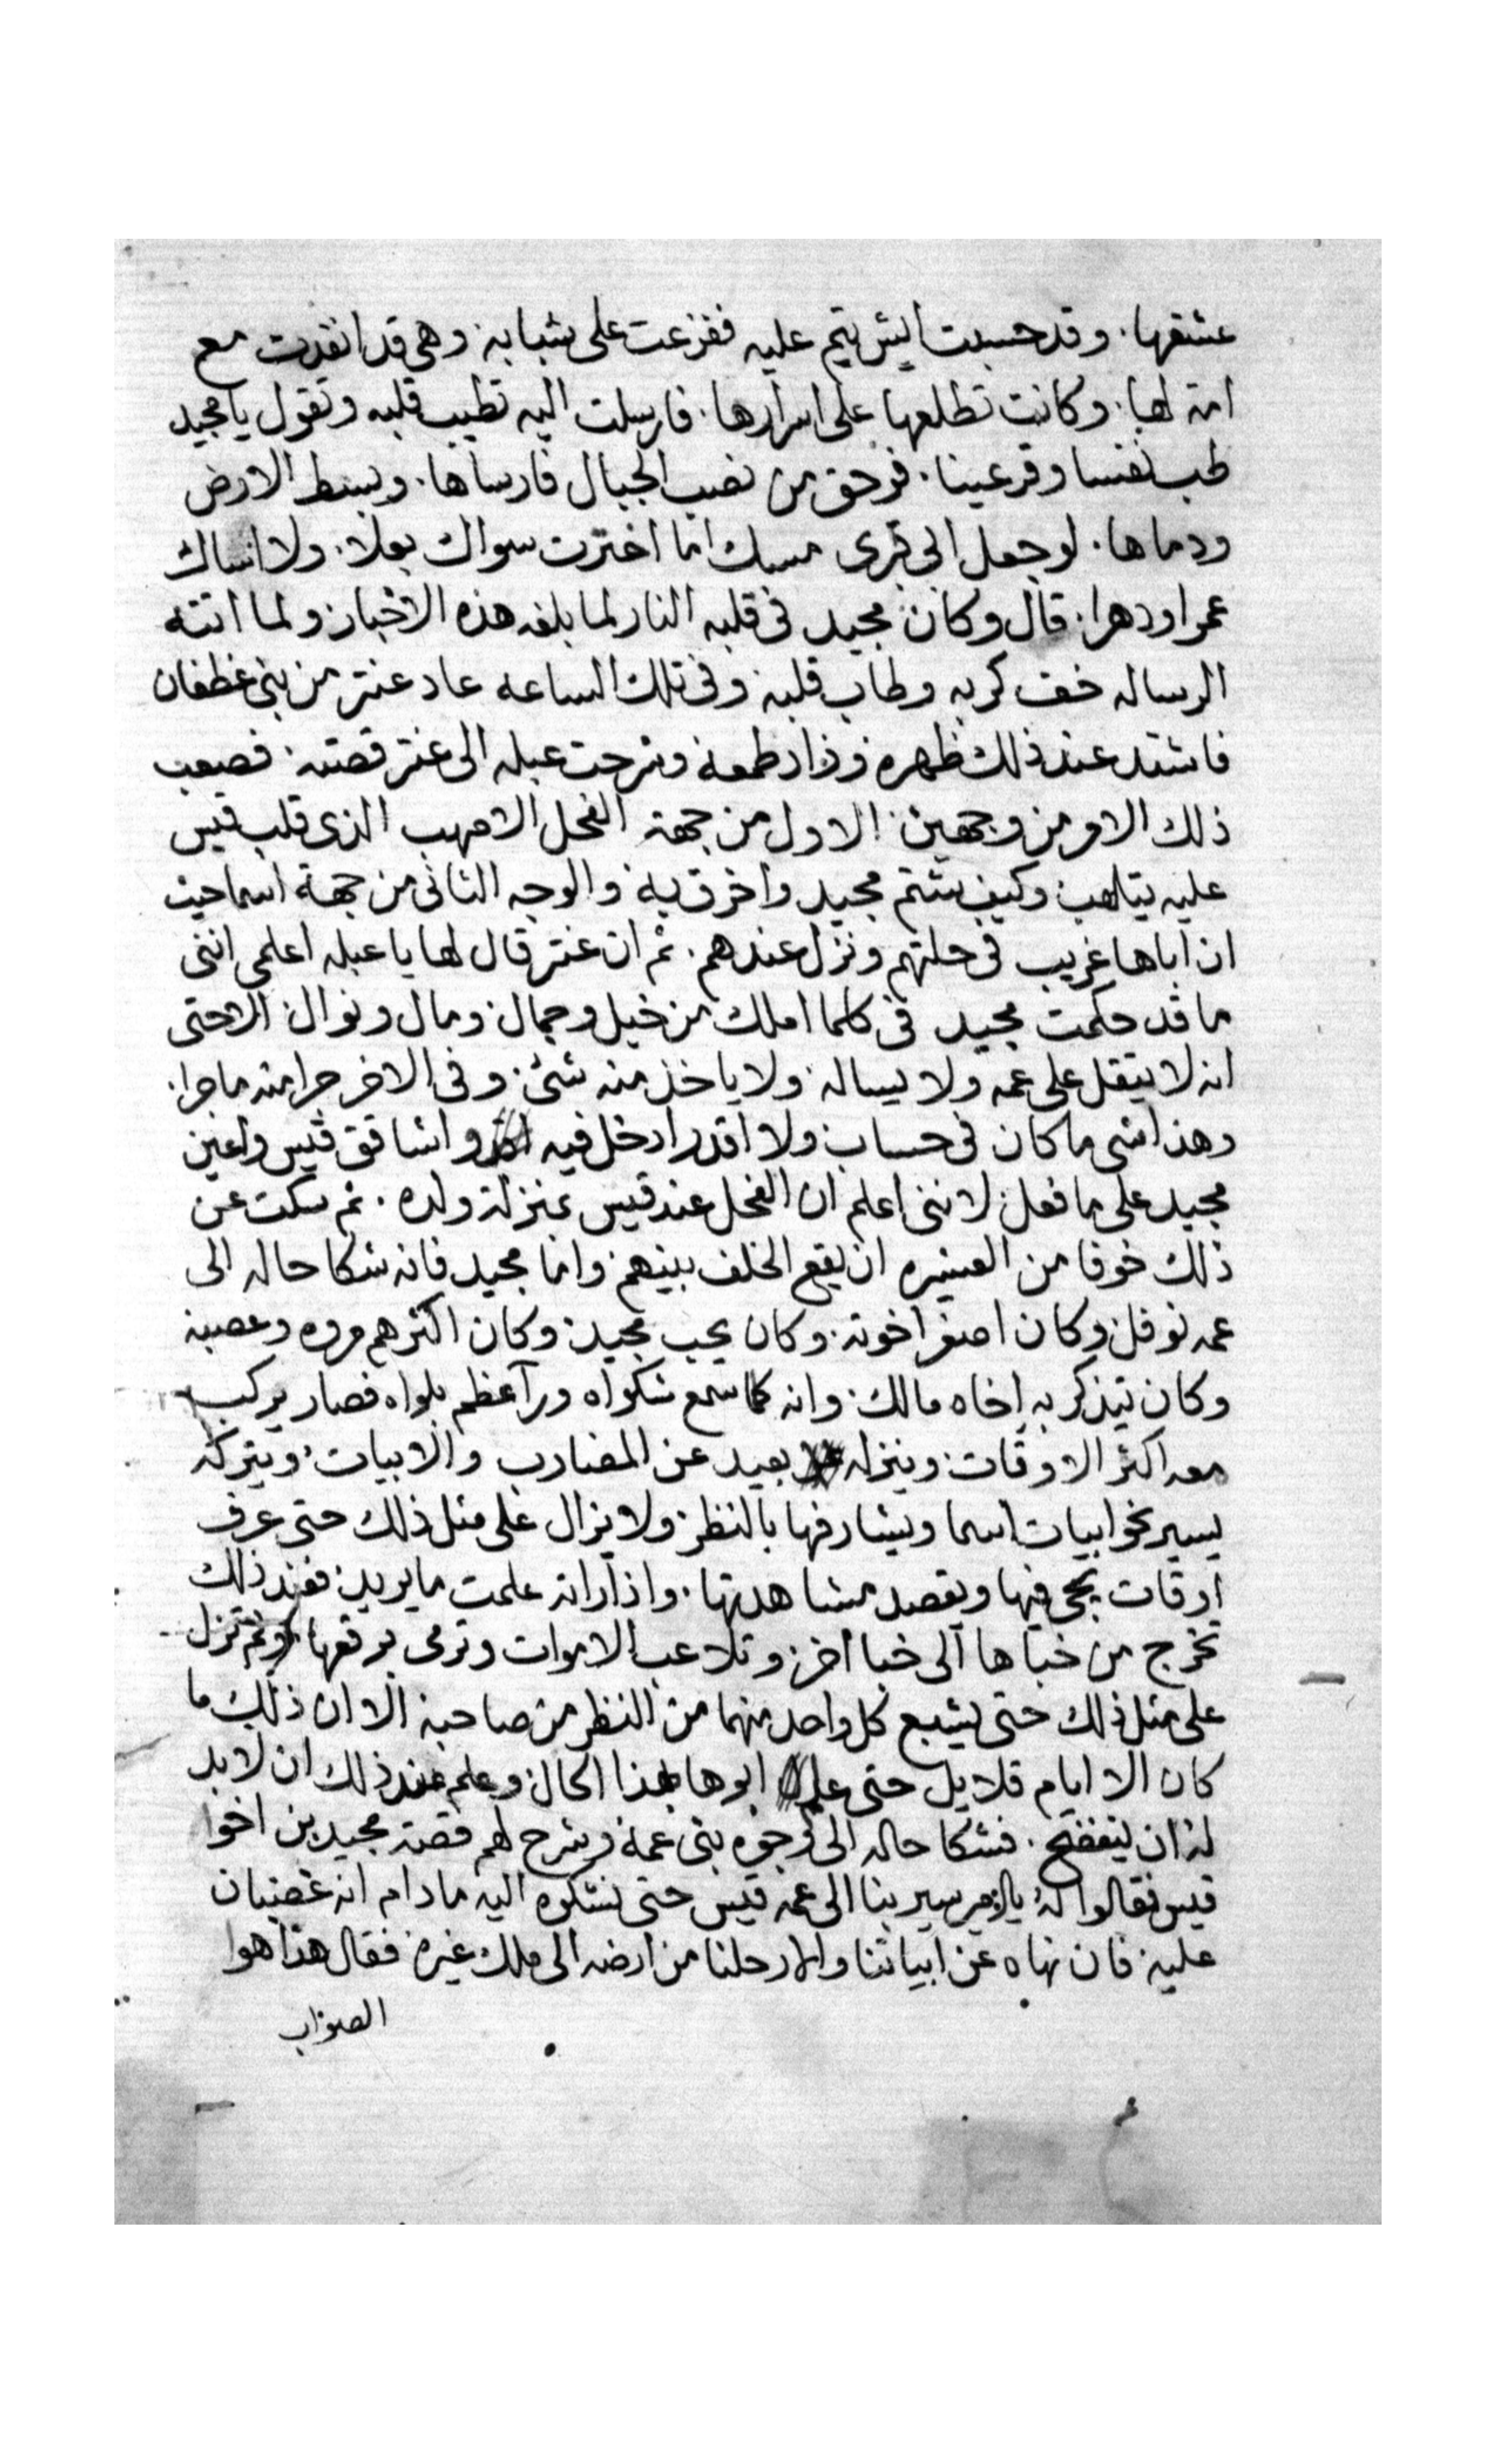 عشقها. وقد حسبت ايش يتم عليه ففزعت على شبابه. وهى قد انفدت مع
امة لها. وكانت تطلعها على اسرارها. فارسلت اليه تطيب قلبه وتقول يا مجيد
طب نفسا وقر عينا. فوحق من نصب الجبال فارساها. وبسط الارض
ودماها. لو جعل ابى قبرى مسك اما اخترت سواك بعلا. ولا انساك
عمرا ودهرا. قال وكان مجيد فى قلبه النار لما بلغه هذه الاخبار. ولما اتته
الرساله خف كربه وطاب قلبه. وفى تلك الساعه عاد عنتر من بنى غطفان
فاشتد عند ذلك ظهره. وزاد طمعه. وشرحت عبله الى عنتر قصته. فصعب
ذلك الامر من وجهين. الاول من جهة الفحل الامهب الذى قلب قيس
عليه يتلهب. وكيف شتم مجيد واخرق به. والوجه الثانى من جهة اسما حيث
ان اباها غريب فى حلتهم ونزل عندهم. ثم ان عنتر قال لها يا عبله اعلمى اننى
ما قد حكمت مجيد فى كلما املك من خيل وجمال. ومال ونوال. الا حتى
انه لا يتقل على عمه ولا يساله. ولا ياخذ منه شئ. وفى الاخر جرا منه ما جرا.
وهذا شى ما كان فى حساب. ولا اقدر ادخل فيه واشاقق قيس واعين
مجيد على ما فعل. لاننى اعلم ان الفحل عند قيس بمنزلة ولده. ثم سكت عن
ذلك خوفا من العشيره ان يقع الخلف بينهم. واما مجيد فانه شكا حاله الى
عمه نوفل. وكان اصغر اخوته. وكان يحب مجيد. وكان اكثرهم مروه وعصبية
وكان يتذكر به اخاه مالك. وانه لما سمع شكواه ورآ عظم بلواه فصار يركب
معه اكثر الاوقات. وينزله بعيد عن المضارب والابيات. ويتركه
يسير نحو ابيات اسما ويشارفها بالنظر. ولا يزال على مثل ذلك حتى عرف
اوقات يجى فيها ويقصد مشاهدتها. واذا راته علمت ما يريد. فعند ذلك
تخرج من خباها الى خبا اخر. وتلاعب الاموات وترمى برقعها ولم تزل
على مثل ذلك حتى يشبع كل واحد منهما من النظر من صاحبه. الا ان ذلك ما
كان الا ايام قلايل حتى علم ابوها بهذا الحال. وعلم عند ذلك ان لا بد
له ان يتفضح. فشكا حاله الى وجوه بنى عمه. وشرح لهم قصة مجيد بن اخوا
قيس فقالوا له يا امير سير بنا الى عمه قيس حتى نشكوه اليه ما دام انه غضبان
عليه. فان نهاه عن ابياتنا والا رحلنا من ارضه الى ملك غيره. فقال هذا هوا
الصواب